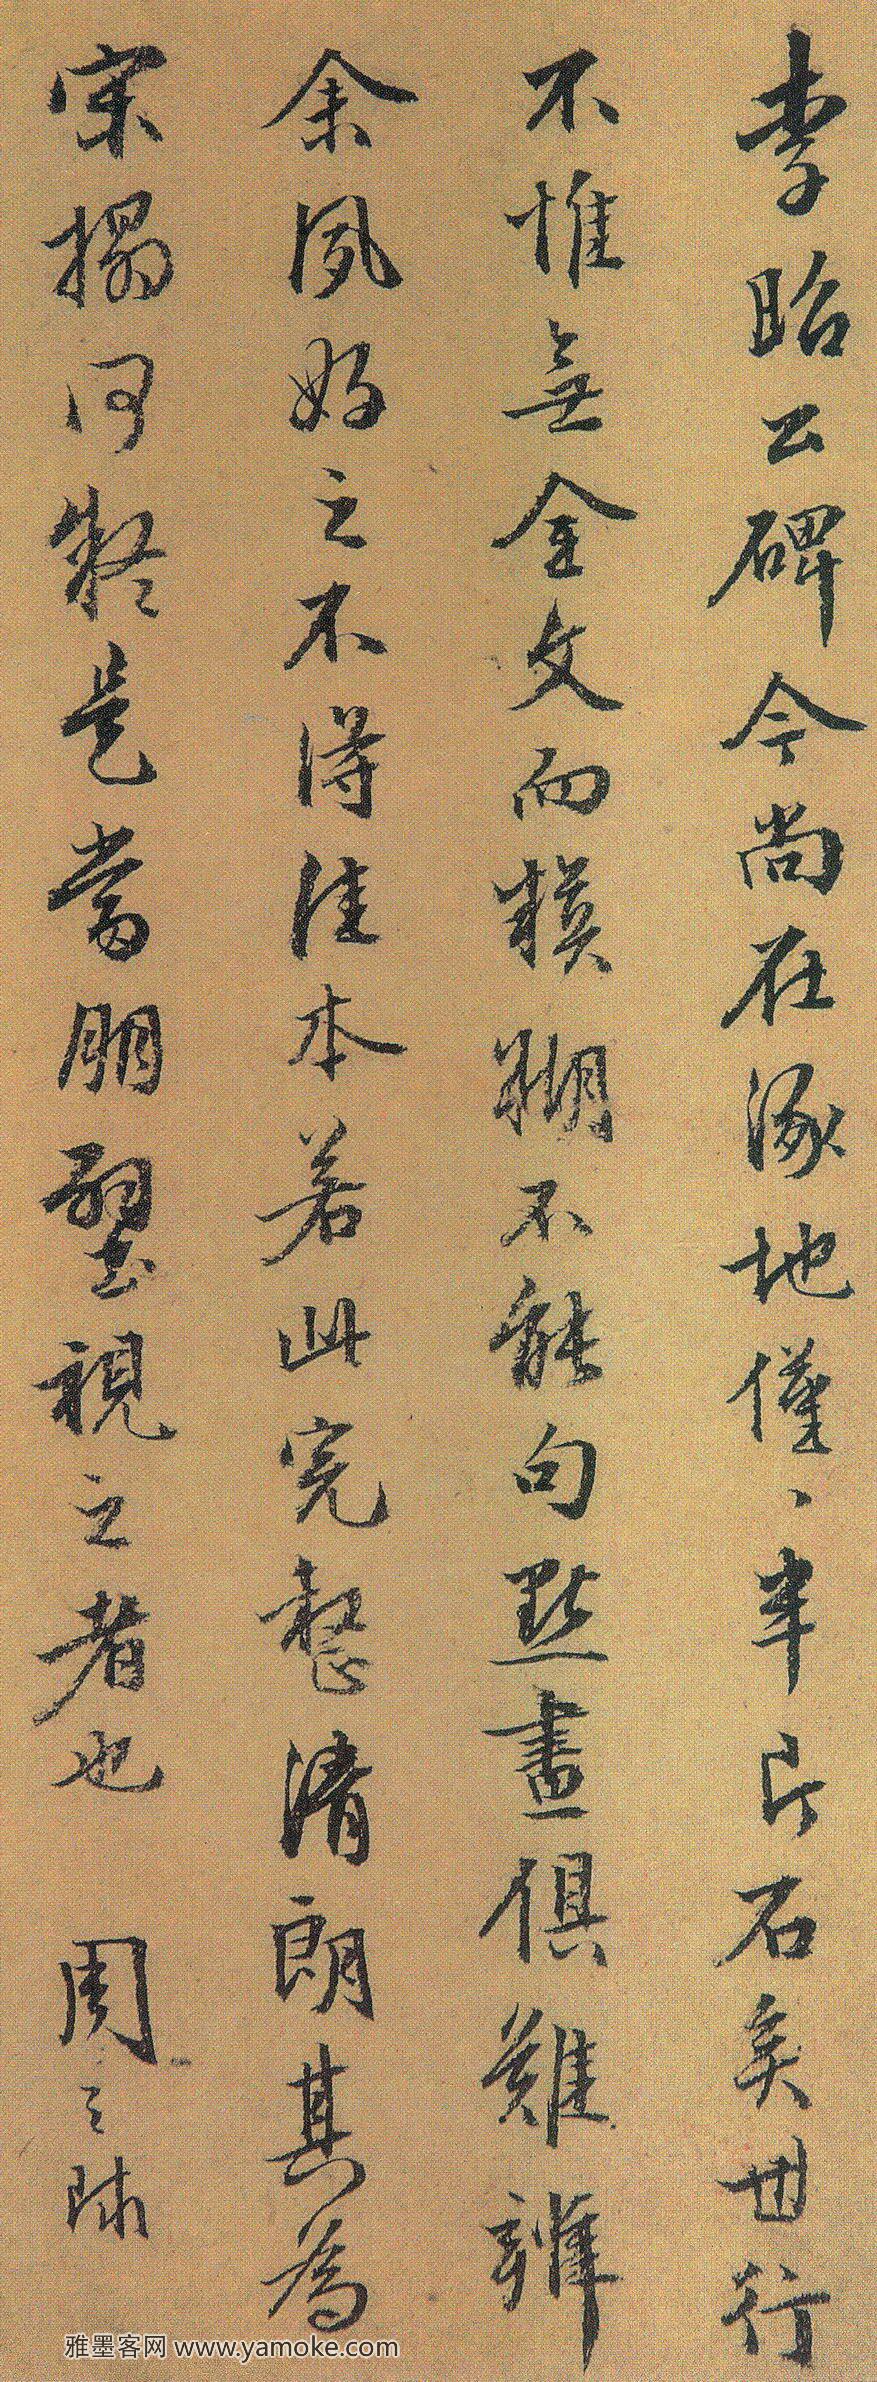 李昭公碑今尚在涿地僅、半片石矣世行
不惟無全文而模糊不能句點畫俱難辨
余夙好之不得佳本若此完整清朗其為
宋搨何疑是當朋璧視之者也 周之
雅墨客网 www.yamoke.com